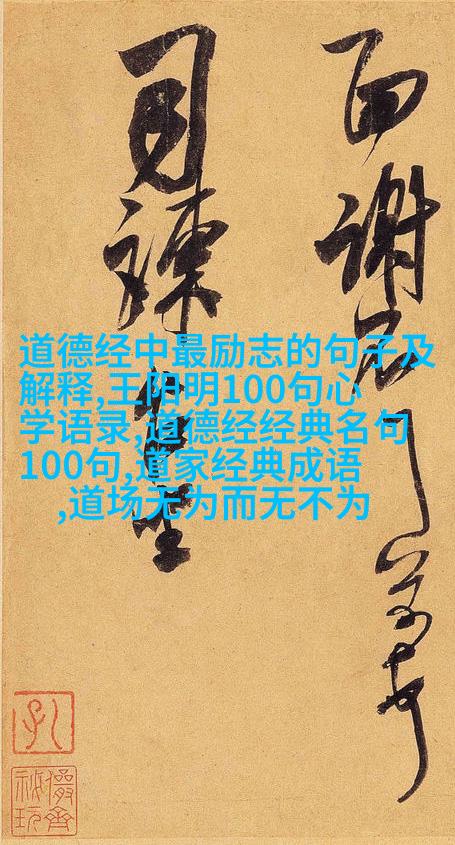 面謝
司諫台坐
道德经中最励志的句子及
解释,王阳明100句心
学语录,道德经经典名句
100句,道家经典成语
,道场无为而无不为
儼齋
秘玩